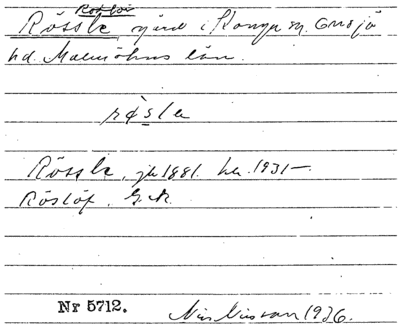 Röslöv
Rössle, gård i Konga sn. Onsjö
hd. Malmöhus län.
røsla
Rössle, jb 1881. hr. 1931–
Röslöf, G.K.
Nr 5712.
Nils Nilsson 1926.